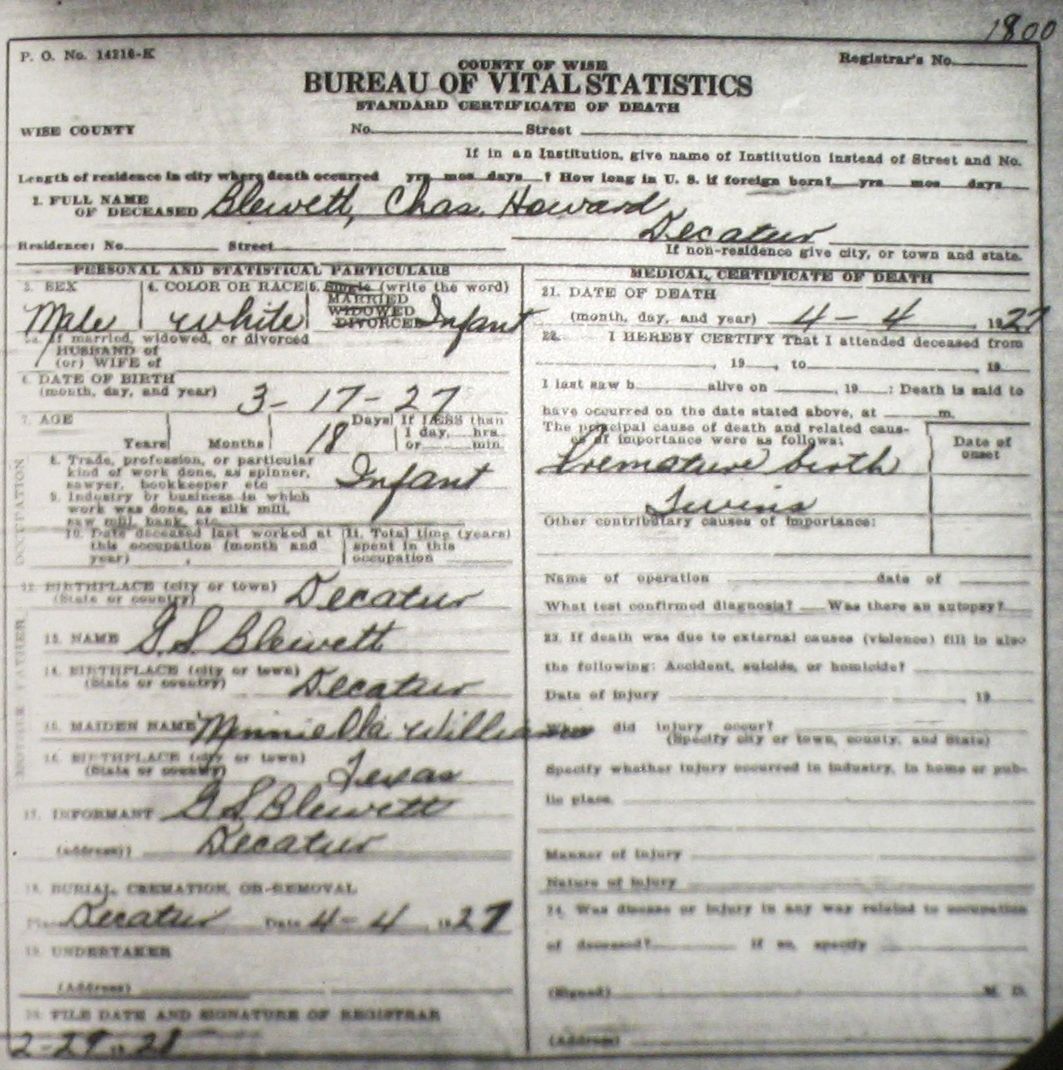 1800
P. O. No. 14216-K
Registrar's No.
COUNTY OF WISE
BUREAU OF VITAL STATISTICS
STANDARD CERTIFICATE OF DEATH
WISE COUNTY No. Street
If in an Institution, give name of Institution instead of Street and No.
Length of residence in city where death occurred yrs mos days ? How long in U. S. if foreign born? yrs mos days
1. FULL NAME OF DECEASED Blewett, Chas. Howard
Residence: No. Street Decatur
If non-residence give city, or town and state.
PERSONAL AND STATISTICAL PARTICULARS
3. SEX 4. COLOR OR RACE 5. Single (write the word)
MARRIED
WIDOWED
DIVORCED
Male white Infant
5a. If married, widowed, or divorced
HUSBAND of
(or) WIFE of
6. DATE OF BIRTH
(month, day, and year) 3-17-27
7. AGE Days If LESS than
1 day, hrs.
Years Months 18 or min.
8. Trade, profession, or particular
kind of work done, as spinner,
sawyer, bookkeeper etc Infant
9. Industry or business in which
work was done, as silk mill,
saw mill, bank, etc.
10. Date deceased last worked at
this occupation (month and
year)
11. Total time (years)
spent in this
occupation
OCCUPATION
12. BIRTHPLACE (city or town)
(State or country) Decatur
FATHER
13. NAME G. S. Blewett
14. BIRTHPLACE (city or town)
(State or country) Decatur
MOTHER
15. MAIDEN NAME Minnie Ola Williams
16. BIRTHPLACE (city or town)
(State or country) Texas
17. INFORMANT G S Blewett
(address) Decatur
18. BURIAL, CREMATION, OR REMOVAL
Place Decatur Date 4-4 1927
19. UNDERTAKER
(Address)
20. FILE DATE AND SIGNATURE OF REGISTRAR
2-29-28
MEDICAL CERTIFICATE OF DEATH
21. DATE OF DEATH
(month, day, and year) 4-4, 1927
22. I HEREBY CERTIFY That I attended deceased from
, 19 , to , 19
I last saw h alive on , 19 ; Death is said to
have occurred on the date stated above, at m.
The principal cause of death and related causes
of importance were as follows:
Date of
onset
Premature birth
Twins
Other contributary causes of importance:
Name of operation date of
What test confirmed diagnosis? Was there an autopsy?
23. If death was due to external causes (violence) fill in also
the following: Accident, suicide, or homicide?
Date of injury 19
Where did injury occur?
(Specify city or town, county, and State)
Specify whether injury occurred in industry, in home or pub-
lic place.
Manner of injury
Nature of injury
24. Was disease or injury in any way related to occupation
of deceased? If so, specify
(Signed) M. D.
(Address)